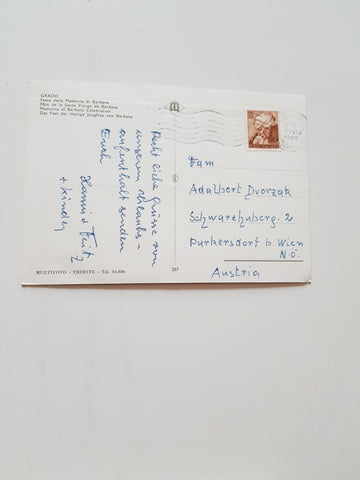 GRADO
Festa della Madonna di Barbana
Fête de la Sainte Vierge de Barbana
Madonna of Barbana Celebration
Das Fest der Heilige Jungfrau von Barbana
Herzliche Grüsse von
unserem Urlaubs-
aufenthalt senden
Euch
Hanni + Fritz
+ Kinder
Fam.
Adalbert Dvorzak
Schwarzhuberg. 2
Purkersdorf b. Wien
N.Ö.
Austria
MULTIFOTO - TRIESTE - Tel.
257